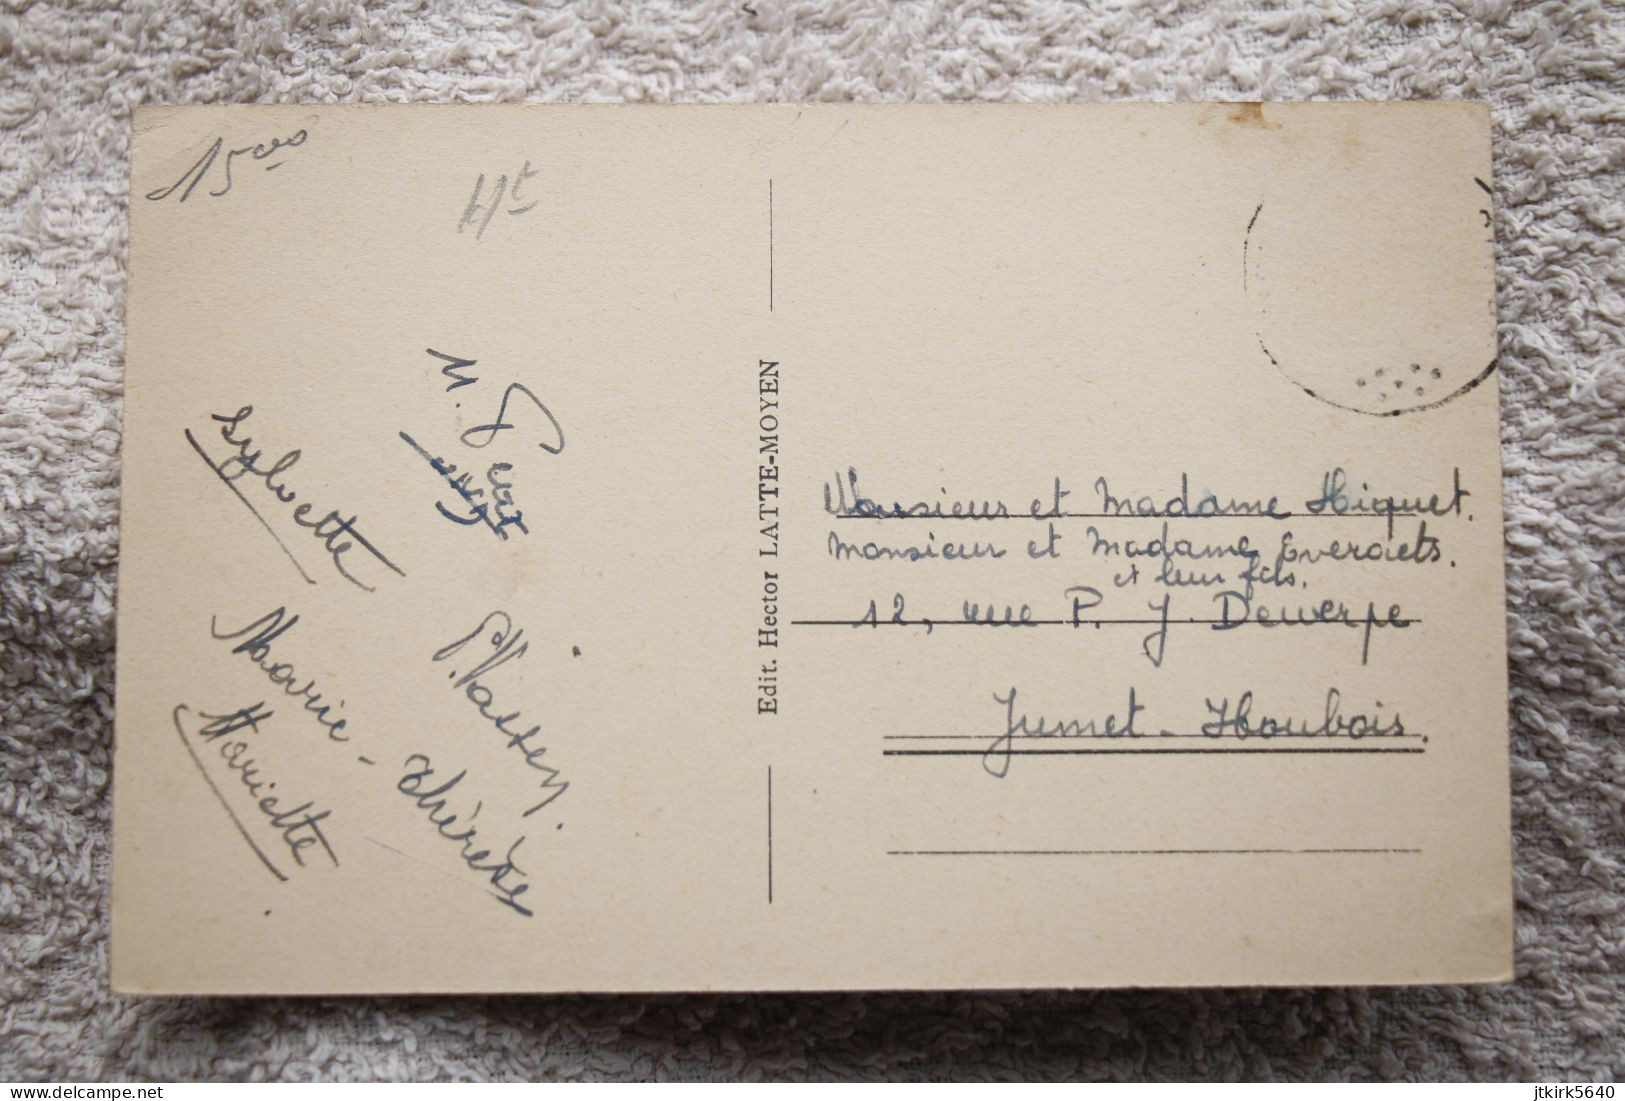 15
Sylvette
M.
Marie-Thérèse
Mariette
Edit. Hector LATTE-MOYEN
Monsieur et Madame Hiquet.
Monsieur et Madame Everaets.
et leur fils.
12, rue P. J. Dewerpe
Jumet - Houbois.
delcampe.net
jtkirk5640